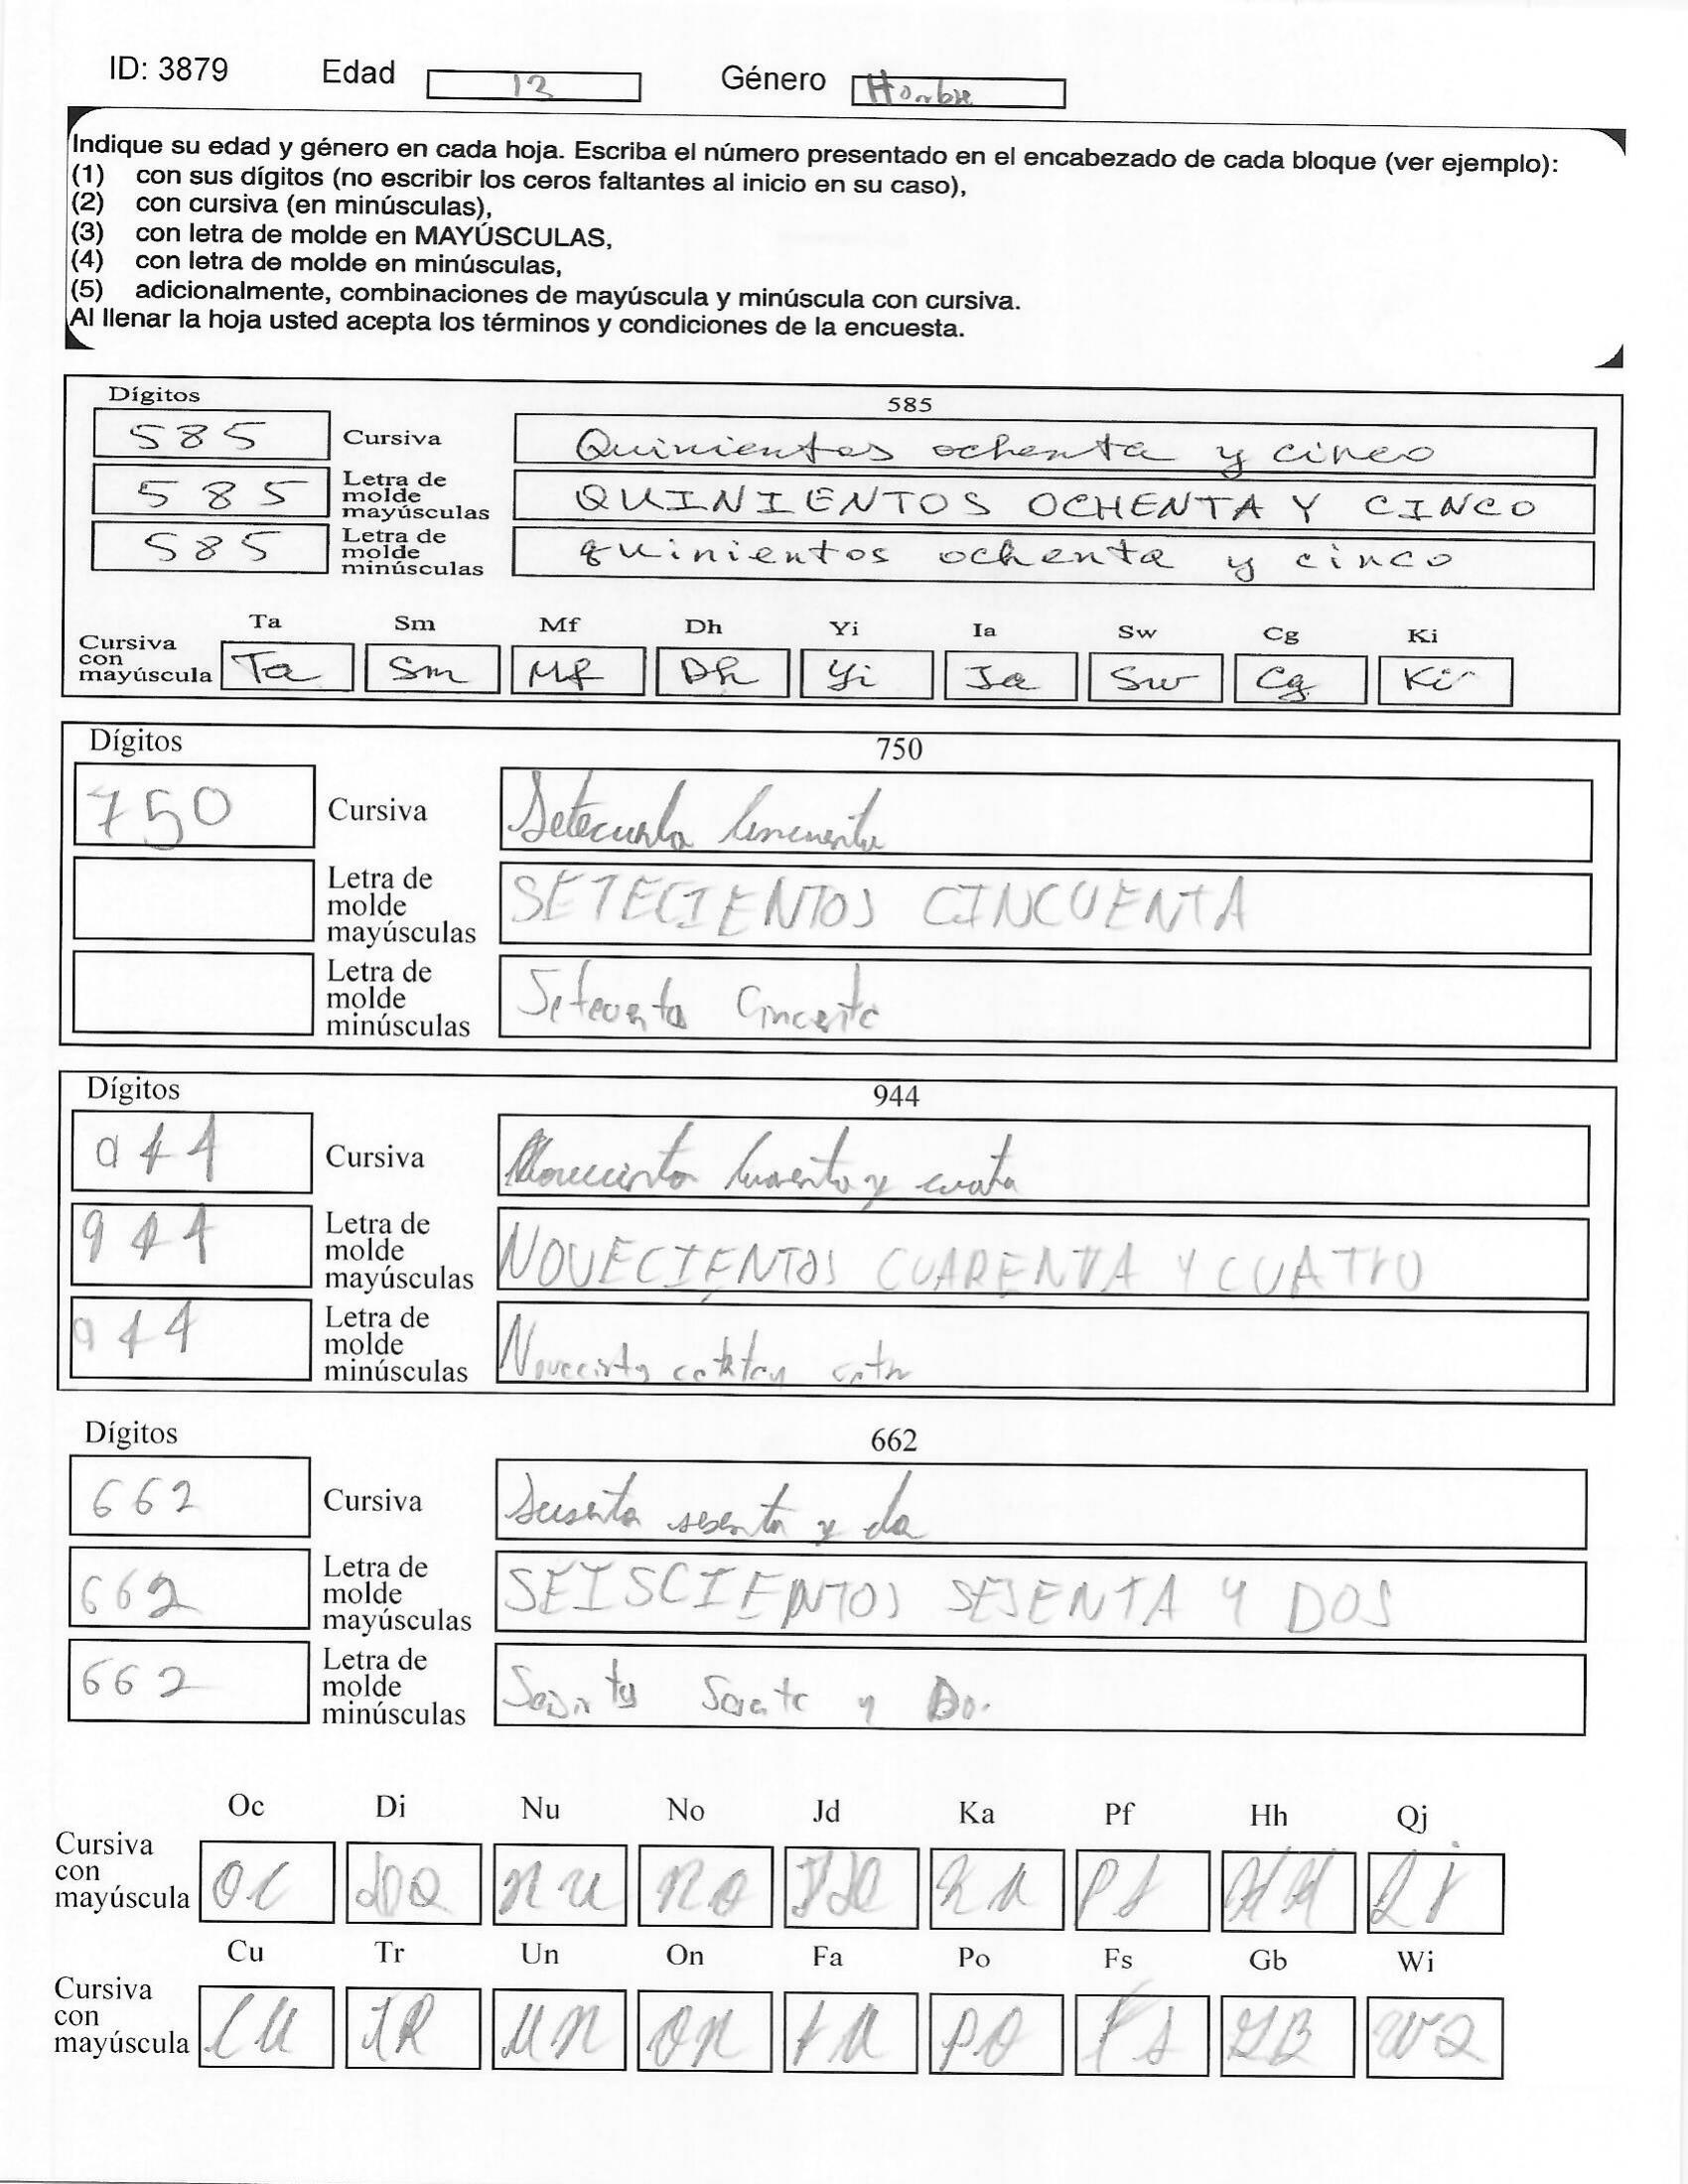 ID: 3879 Edad 12 Género Hombre
Indique su edad y género en cada hoja. Escriba el número presentado en el encabezado de cada bloque (ver ejemplo):
(1) con sus dígitos (no escribir los ceros faltantes al inicio en su caso),
(2) con cursiva (en minúsculas),
(3) con letra de molde en MAYÚSCULAS,
(4) con letra de molde en minúsculas,
(5) adicionalmente, combinaciones de mayúscula y minúscula con cursiva.
Al llenar la hoja usted acepta los términos y condiciones de la encuesta.
Dígitos 585
585 Cursiva Quinientos ochenta y cinco
585 Letra de molde mayúsculas QUINIENTOS OCHENTA Y CINCO
585 Letra de molde minúsculas quinientos ochenta y cinco
Ta Sm Mf Dh Yi Ia Sw Cg Ki
Cursiva con mayúscula Ta Sm Mf Dh Yi Ia Sw Cg Ki
Dígitos 750
750 Cursiva
Letra de molde mayúsculas SETECIENTOS CINCUENTA
Letra de molde minúsculas
Dígitos 944
944 Cursiva
944 Letra de molde mayúsculas NOVECIENTOS CUARENTA Y CUATRO
944 Letra de molde minúsculas
Dígitos 662
662 Cursiva y
662 Letra de molde mayúsculas SEISCIENTOS SESENTA Y DOS
662 Letra de molde minúsculas y
Oc Di Nu No Jd Ka Pf Hh Qj
Cursiva con mayúscula OC NU NO KA
Cu Tr Un On Fa Po Fs Gb Wi
Cursiva con mayúscula CU TR UN ON FA PO FS GB